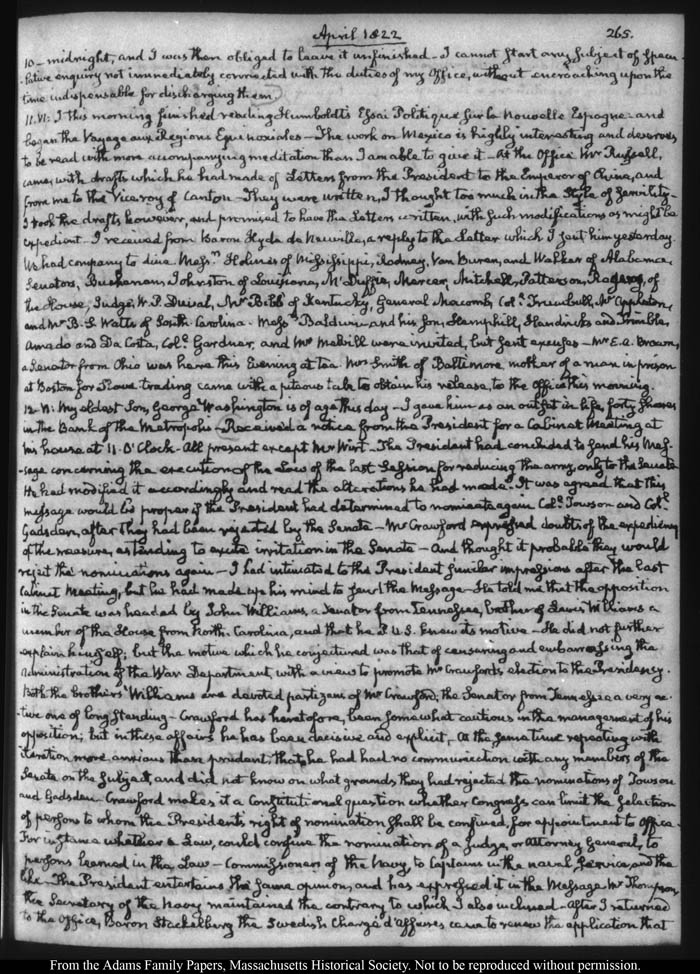 April 1822
265.
10 – midnight, and I was then obliged to leave it unfinished – I cannot start any subject of specu-
-lative enquiry not immediately connected with the duties of my Office, without encroaching upon the
time indispensable for discharging them.
11. VI: I this morning finished reading Humboldt's Essai Politique sur la Nouvelle Espagne: and
began the Voyage aux Regions Equinoxiales – The work on Mexico is highly interesting and deserves
to be read with more accompanying meditation than I am able to give it – At the Office Mr Russell,
came, with drafts which he had made of Letters from the President to the Emperor of China, and
from me to the Viceroy of Canton – They were written, I thought too much in the Style of Servility –
I took the drafts however, and promised to have the Letters written, with such modifications as might be
expedient. I received from Baron Hyde de Neuville, a reply to the Letter which I sent him yesterday.
We had company to dine Messrs Holmes of Mississippi, Rodney, Van Buren, and Walker of Alabama,
Senators, Buchanan, Johnston of Louisiana, McDuffie, Mercer, Mitchell, Patterson, of
the House, Judge W. P. Duval, Mr Bibb of Kentucky, General Macomb, Col. Trumbull, Mr Appleton,
and Mr B. S. Watts of South Carolina – Messrs Baldwin and his Son, Hemphill, Hendricks and Trimble,
Amado and Da Costa, Col. Gardner, and Mr Meivill were invited, but sent excuses – Mr E. A. Brown,
a Senator from Ohio was here this Evening at tea. Mrs Smith of Baltimore, mother of a man in prison
at Boston for Slave trading came with a piteous tale to obtain his release, to the Office this morning.
12. VI: My oldest Son, George Washington is of age this day – I gave him as an outfit in life, forty shares
in the Bank of the Metropolis – Received a notice from the President for a Cabinet Meeting at
his house at 11 O'Clock – All present except Mr Wirt – The President had concluded to send his Mes-
-sage concerning the execution of the Law of the last Session for reducing the army, only to the Senate
He had modified it accordingly and read the alterations he had made. It was agreed that this
message would be proper if the President had determined to nominate again Col. Towson and Col.
Gadsden, after they had been rejected by the Senate – Mr Crawford expressed doubts of the expediency
of the measure, as tending to excite irritation in the Senate – And thought it probable they would
reject the nominations again – I had intimated to the President similar impressions after the last
Cabinet Meeting, but he had made up his mind to send the Message – He told me that the opposition
in the Senate was headed by John Williams, a Senator from Tennessee, brother of Lewis Williams a
member of the House from North-Carolina, and that he P. U.S. knew its motive – He did not further
explain himself; but the motive which he conjectured was that of censuring and embarrassing the
administration of the War Department, with a view to promote Mr Crawford's election to the Presidency.
Both the brothers Williams are devoted partizans of Mr Crawford, the Senator from Tennessee a very ac-
tive one of long standing – Crawford has heretofore, been somewhat cautious in the management of his
opposition; but in these affairs he has been decisive and explicit. At the same time repeating with
iteration more anxious than prudent, that he had had no communication with any members of the
Senate on the subject, and did not know on what grounds they had rejected the nominations of Towson
and Gadsden. Crawford makes it a Constitutional question whether Congress can limit the selection
of persons to whom the President's right of nomination shall be confined, for appointment to Office –
For instance whether a Law, could confine the nomination of a Judge, or Attorney General, to
persons learned in the Law – Commissioners of the Navy, to Captains in the naval service, and the
like – The President entertains the same opinion, and has expressed it in the Message. Mr Thompson,
the Secretary of the Navy maintained the contrary to which I also inclined – After I returned
to the Office, Baron Stackelberg the Swedish Chargé d'Affaires came to renew the application that
From the Adams Family Papers, Massachusetts Historical Society. Not to be reproduced without permission.